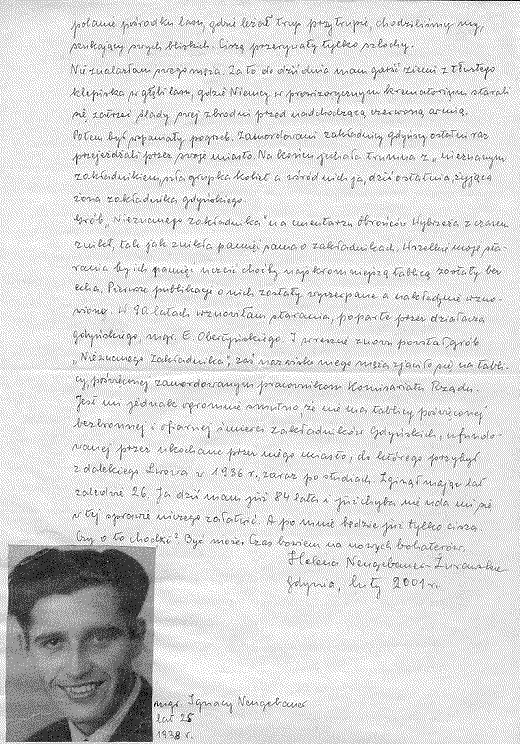 polanie pośrodku lasu, gdzie leżał trup przy trupie, chodziliśmy my,
szukający swych bliskich. Ciszę przerywały tylko szlochy.
Nie znalazłam swego męża. Za to do dziś dnia mam garść ziemi z tłustego
klepiska w głębi lasu, gdzie Niemcy w prowizorycznym krematorium starali
się zatrzeć ślady swej zbrodni przed nadchodzącą czerwoną armią.
Potem był wspaniały pogrzeb. Zamordowani zakładnicy gdyńscy ostatni raz
przejeżdżali przez swoje miasto. Na końcu jechała trumna z „nieznanym
zakładnikiem, szła grupka kobiet a wśród nich ja, dziś ostatnia, żyjąca
żona zakładnika gdyńskiego.
Grób „Nieznanego zakładnika" na cmentarzu Obrońców Wybrzeża z czasem
znikł, tak jak znikła pamięć sama o zakładnikach. Wszelkie moje sta-
rania by ich pamięć uczcić choćby najskromniejszą tablicą zostały bez
echa. Pierwsze publikacje o nich zostały wyczerpane a nakładu nie wzno-
wiono. W 90 latach wznowiłam starania, poparte przez działacza
gdyńskiego, mgr. E. Obertyńskiego. I wreszcie znowu powstał grób
„Nieznanego Zakładnika", zaś nazwisko mego męża zjawiło się na tabli-
cy, poświęconej zamordowanym pracownikom Komisariatu Rządu.
Jest mi jednak ogromnie smutno, że nie ma tablicy poświęconej
bezbronnej i ofiarnej śmierci zakładników Gdyńskich, ufundo-
wanej przez ukochane przez niego miasto, do którego przybył
z dalekiego Lwowa w 1936 r. zaraz po studiach. Zginął mając lat
zaledwie 26. Ja dziś mam już 84 lata i już chyba nie uda mi się
w tej sprawie niczego załatwić. A po mnie będzie już tylko cisza.
Czy o to chodzi? Być może. Czas bowiem na nowych bohaterów.
Helena Neugebauer-Żurawska
Gdynia, luty 2001 r.
mgr. Ignacy Neugebauer
lat 25
1938 r.